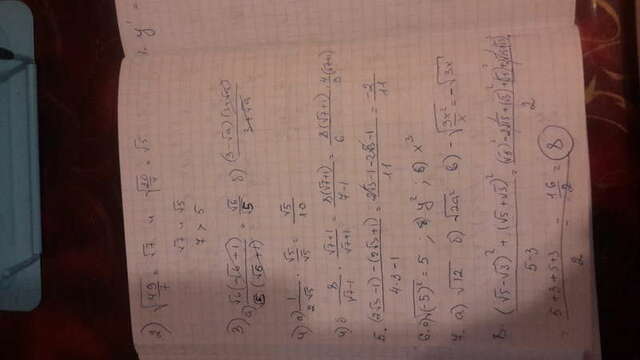 2) √(49/7) = √7 и √(20/4) = √5
√7 и √5
7 > 5
3) а) √6(√6-1)/√5(√6+1) = √6/√5 б) (3-√a)(3+√a)/3+√a
4) а) 1/2√5 · √5/√5 = √5/10
4) б 8/√7-1 · √7+1/√7+1 = 8(√7+1)/7-1 = 8(√7+1)/6 · 4(√7+1)/3
5. (2√3-1)-(2√3+1)/4·3-1 = 2√3-1-2√3-1/11 = -2/11
6. а) √(-5)² = 5 ; б) y² ; в) x³
7. а) √12 б) √2a² в) -√(3x²/x) = -√3x
8. (√5-√3)² + (√5+√3)²/5-3
= 5+3+5+3/2 = 16/2 = 8
1. y' =